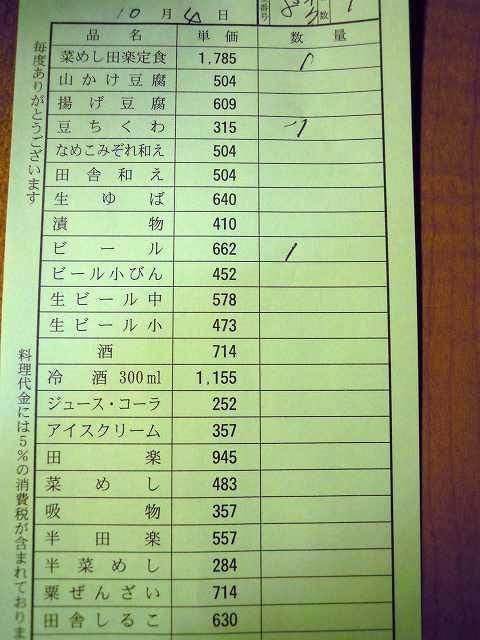 10月4日
番号
数
品名 単価 数量
菜めし田楽定食 1,785 1
山かけ豆腐 504
揚げ豆腐 609
豆ちくわ 315 1
なめこみぞれ和え 504
田舎和え 504
生ゆば 640
漬物 410
ビール 662 1
ビール小びん 452
生ビール中 578
生ビール小 473
酒 714
冷酒300ml 1,155
ジュース・コーラ 252
アイスクリーム 357
田楽 945
菜めし 483
吸物 357
半田楽 557
半菜めし 284
粟ぜんざい 714
田舎しるこ 630
毎度ありがとうございます
料理代金には5%の消費税が含まれておりま